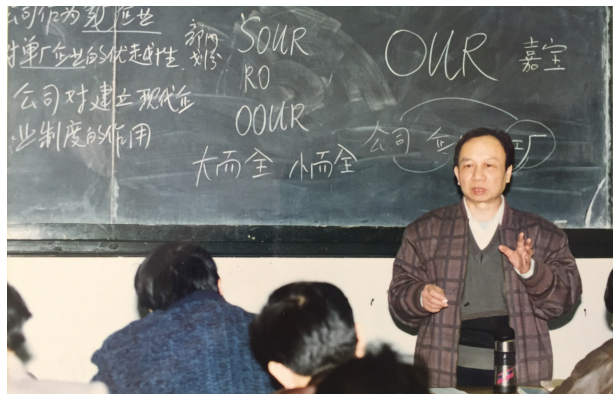 公司作为新企业
对单厂企业的优越性
公司对建立现代企
业制度的作用
部门
划分
SOUR
RO
OOUR
大而全 小而全
OUR 嘉宝
公司 企 厂